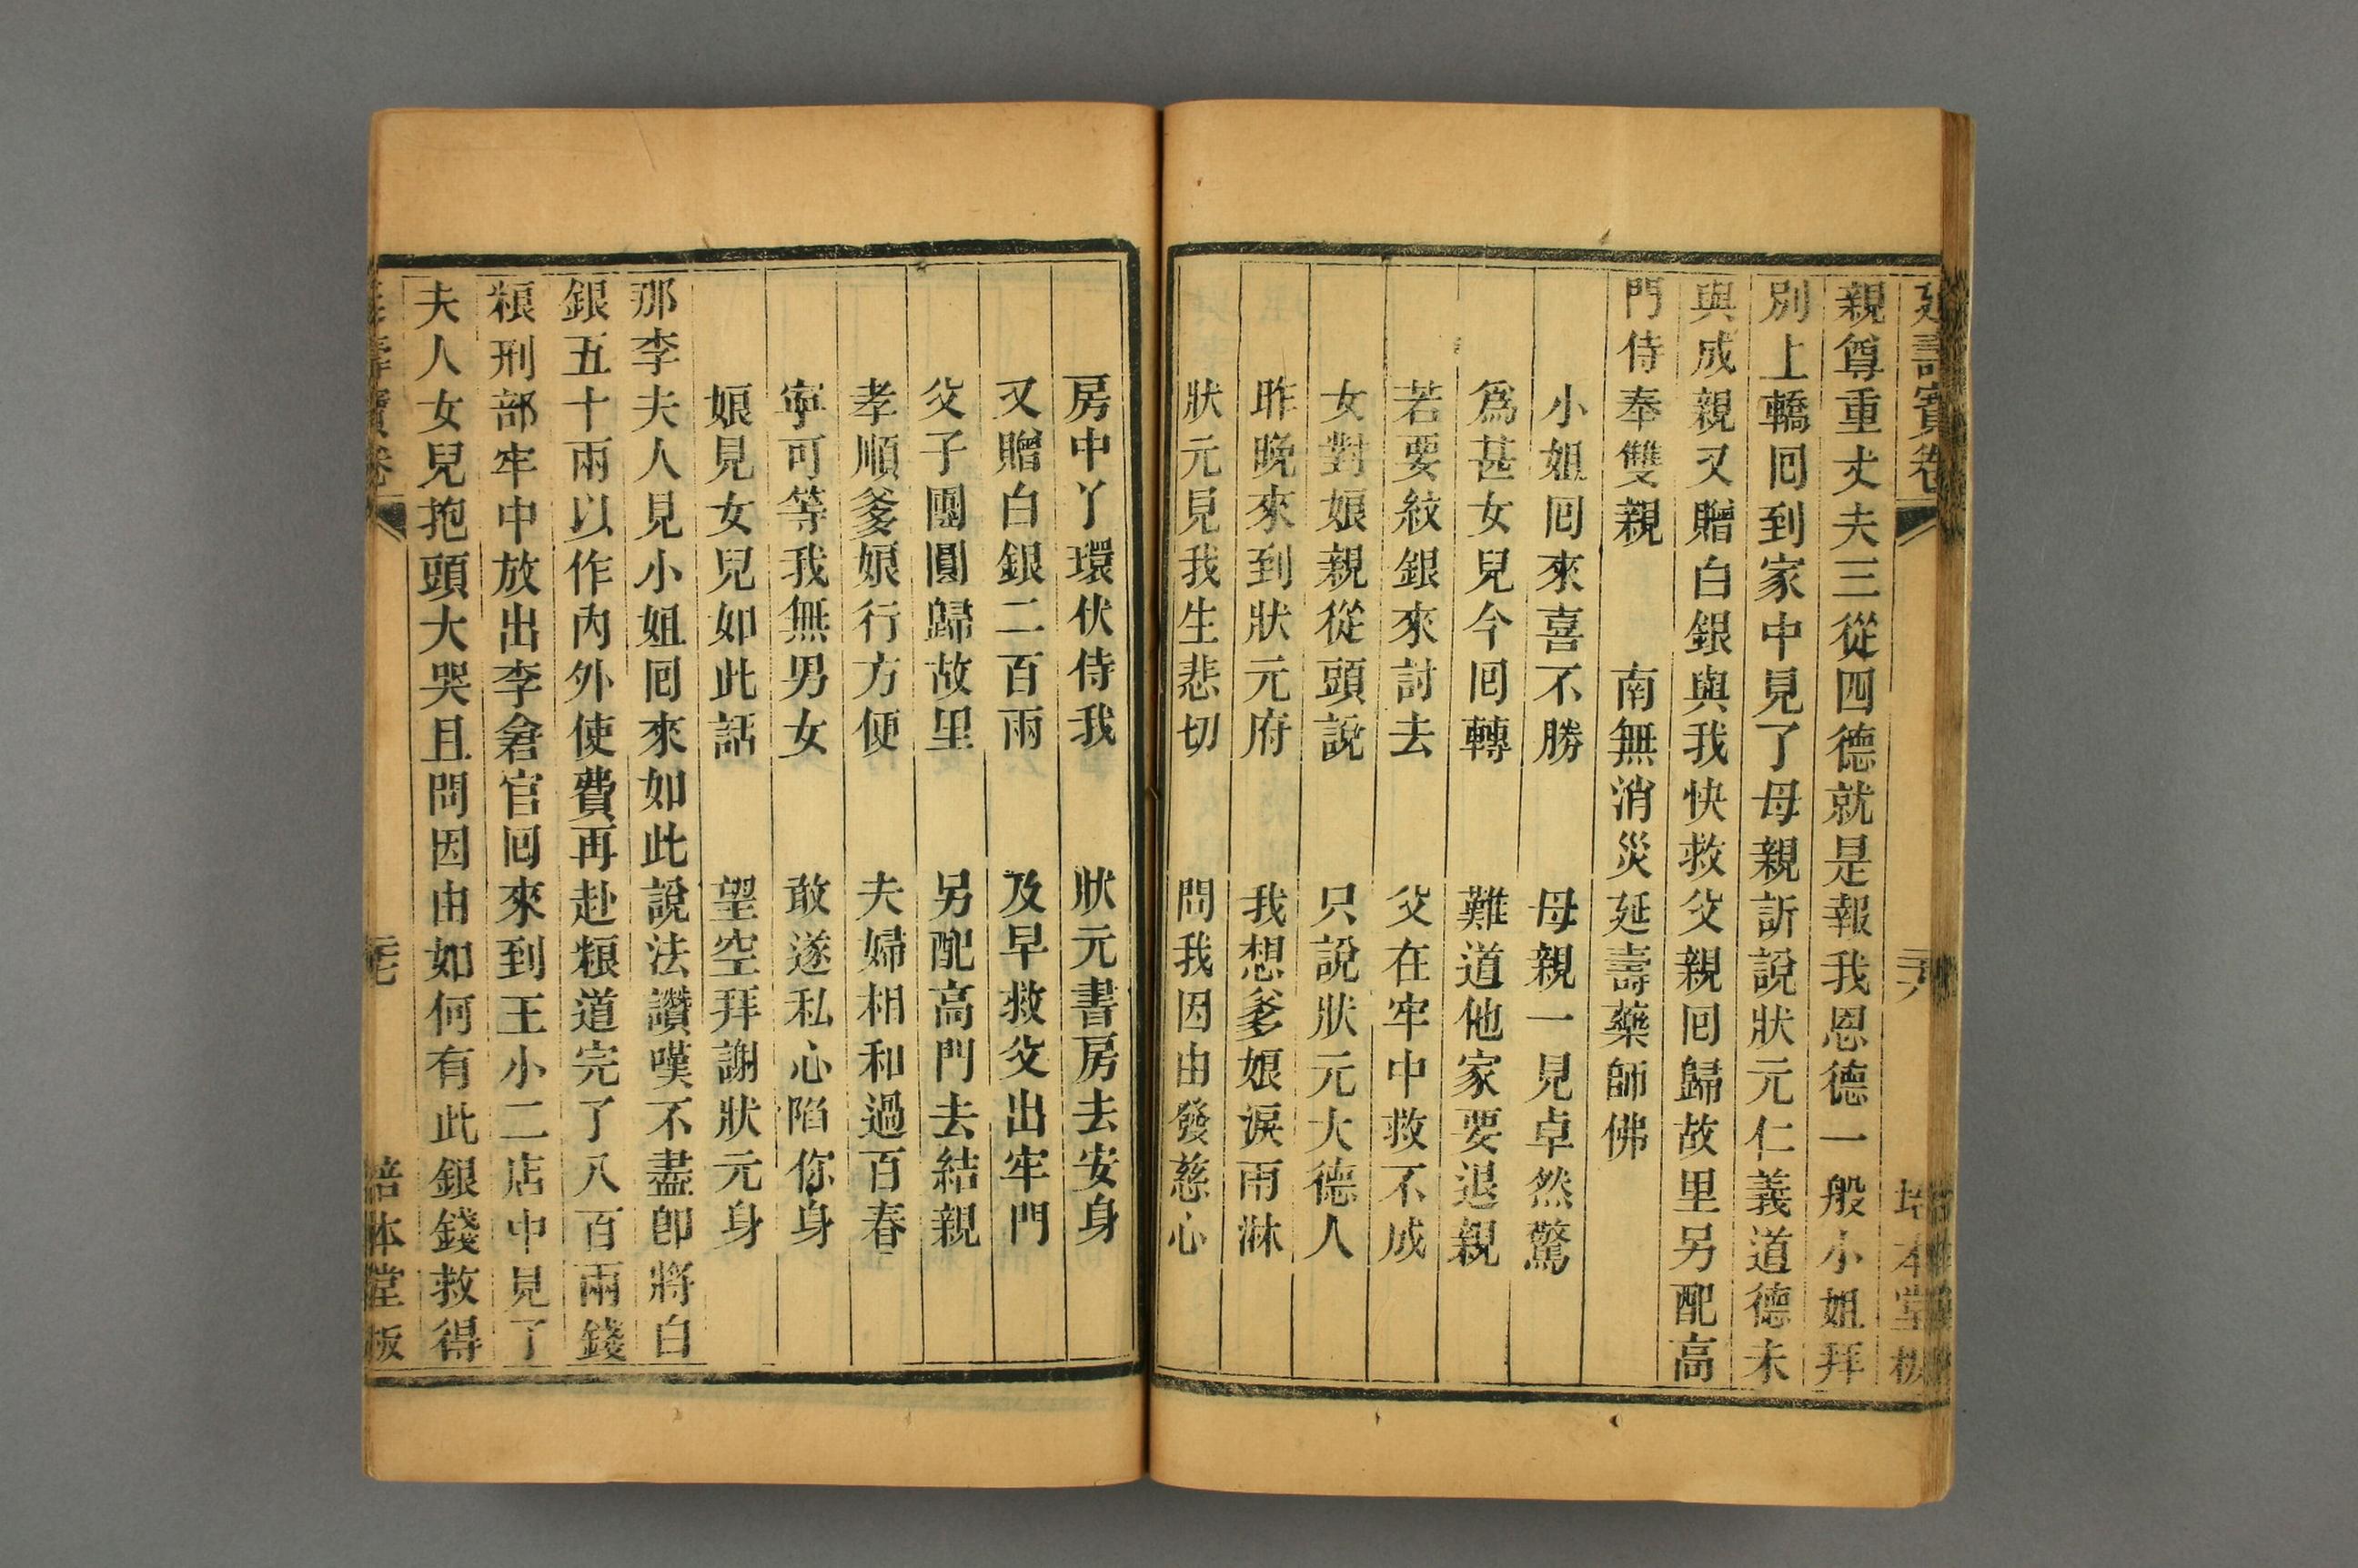 延壽寶卷 培本堂板
親尊重丈夫三從四德就是報我恩德一般小姐拜
別上轎囘到家中見了母親訴說狀元仁義道德未
與成親又贈白銀與我快救父親囘歸故里另配高
門侍奉雙親 南無消災延壽藥師佛
小姐囘來喜不勝 母親一見卓然驚
爲甚女兒今囘轉 難道他家要退親
若要紋銀來討去 父在牢中救不成
女對娘親從頭說 只說狀元大德人
昨晚來到狀元府 我想爹娘淚雨淋
狀元見我生悲切 問我因由發慈心
房中丫環伏侍我 狀元書房去安身
又贈白銀二百兩 及早救父出牢門
父子團圓歸故里 另配高門去結親
孝順爹娘行方便 夫婦相和過百春
寧可等我無男女 敢遂私心陷你身
娘見女兒如此話 望空拜謝狀元身
那李夫人見小姐囘來如此說法讚嘆不盡卽將白
銀五十兩以作內外使費再赴粮道完了八百兩錢
粮刑部牢中放出李倉官囘來到王小二店中見了
夫人女兒抱頭大哭且問因由如何有此銀錢救得
壽寶卷 培本堂板